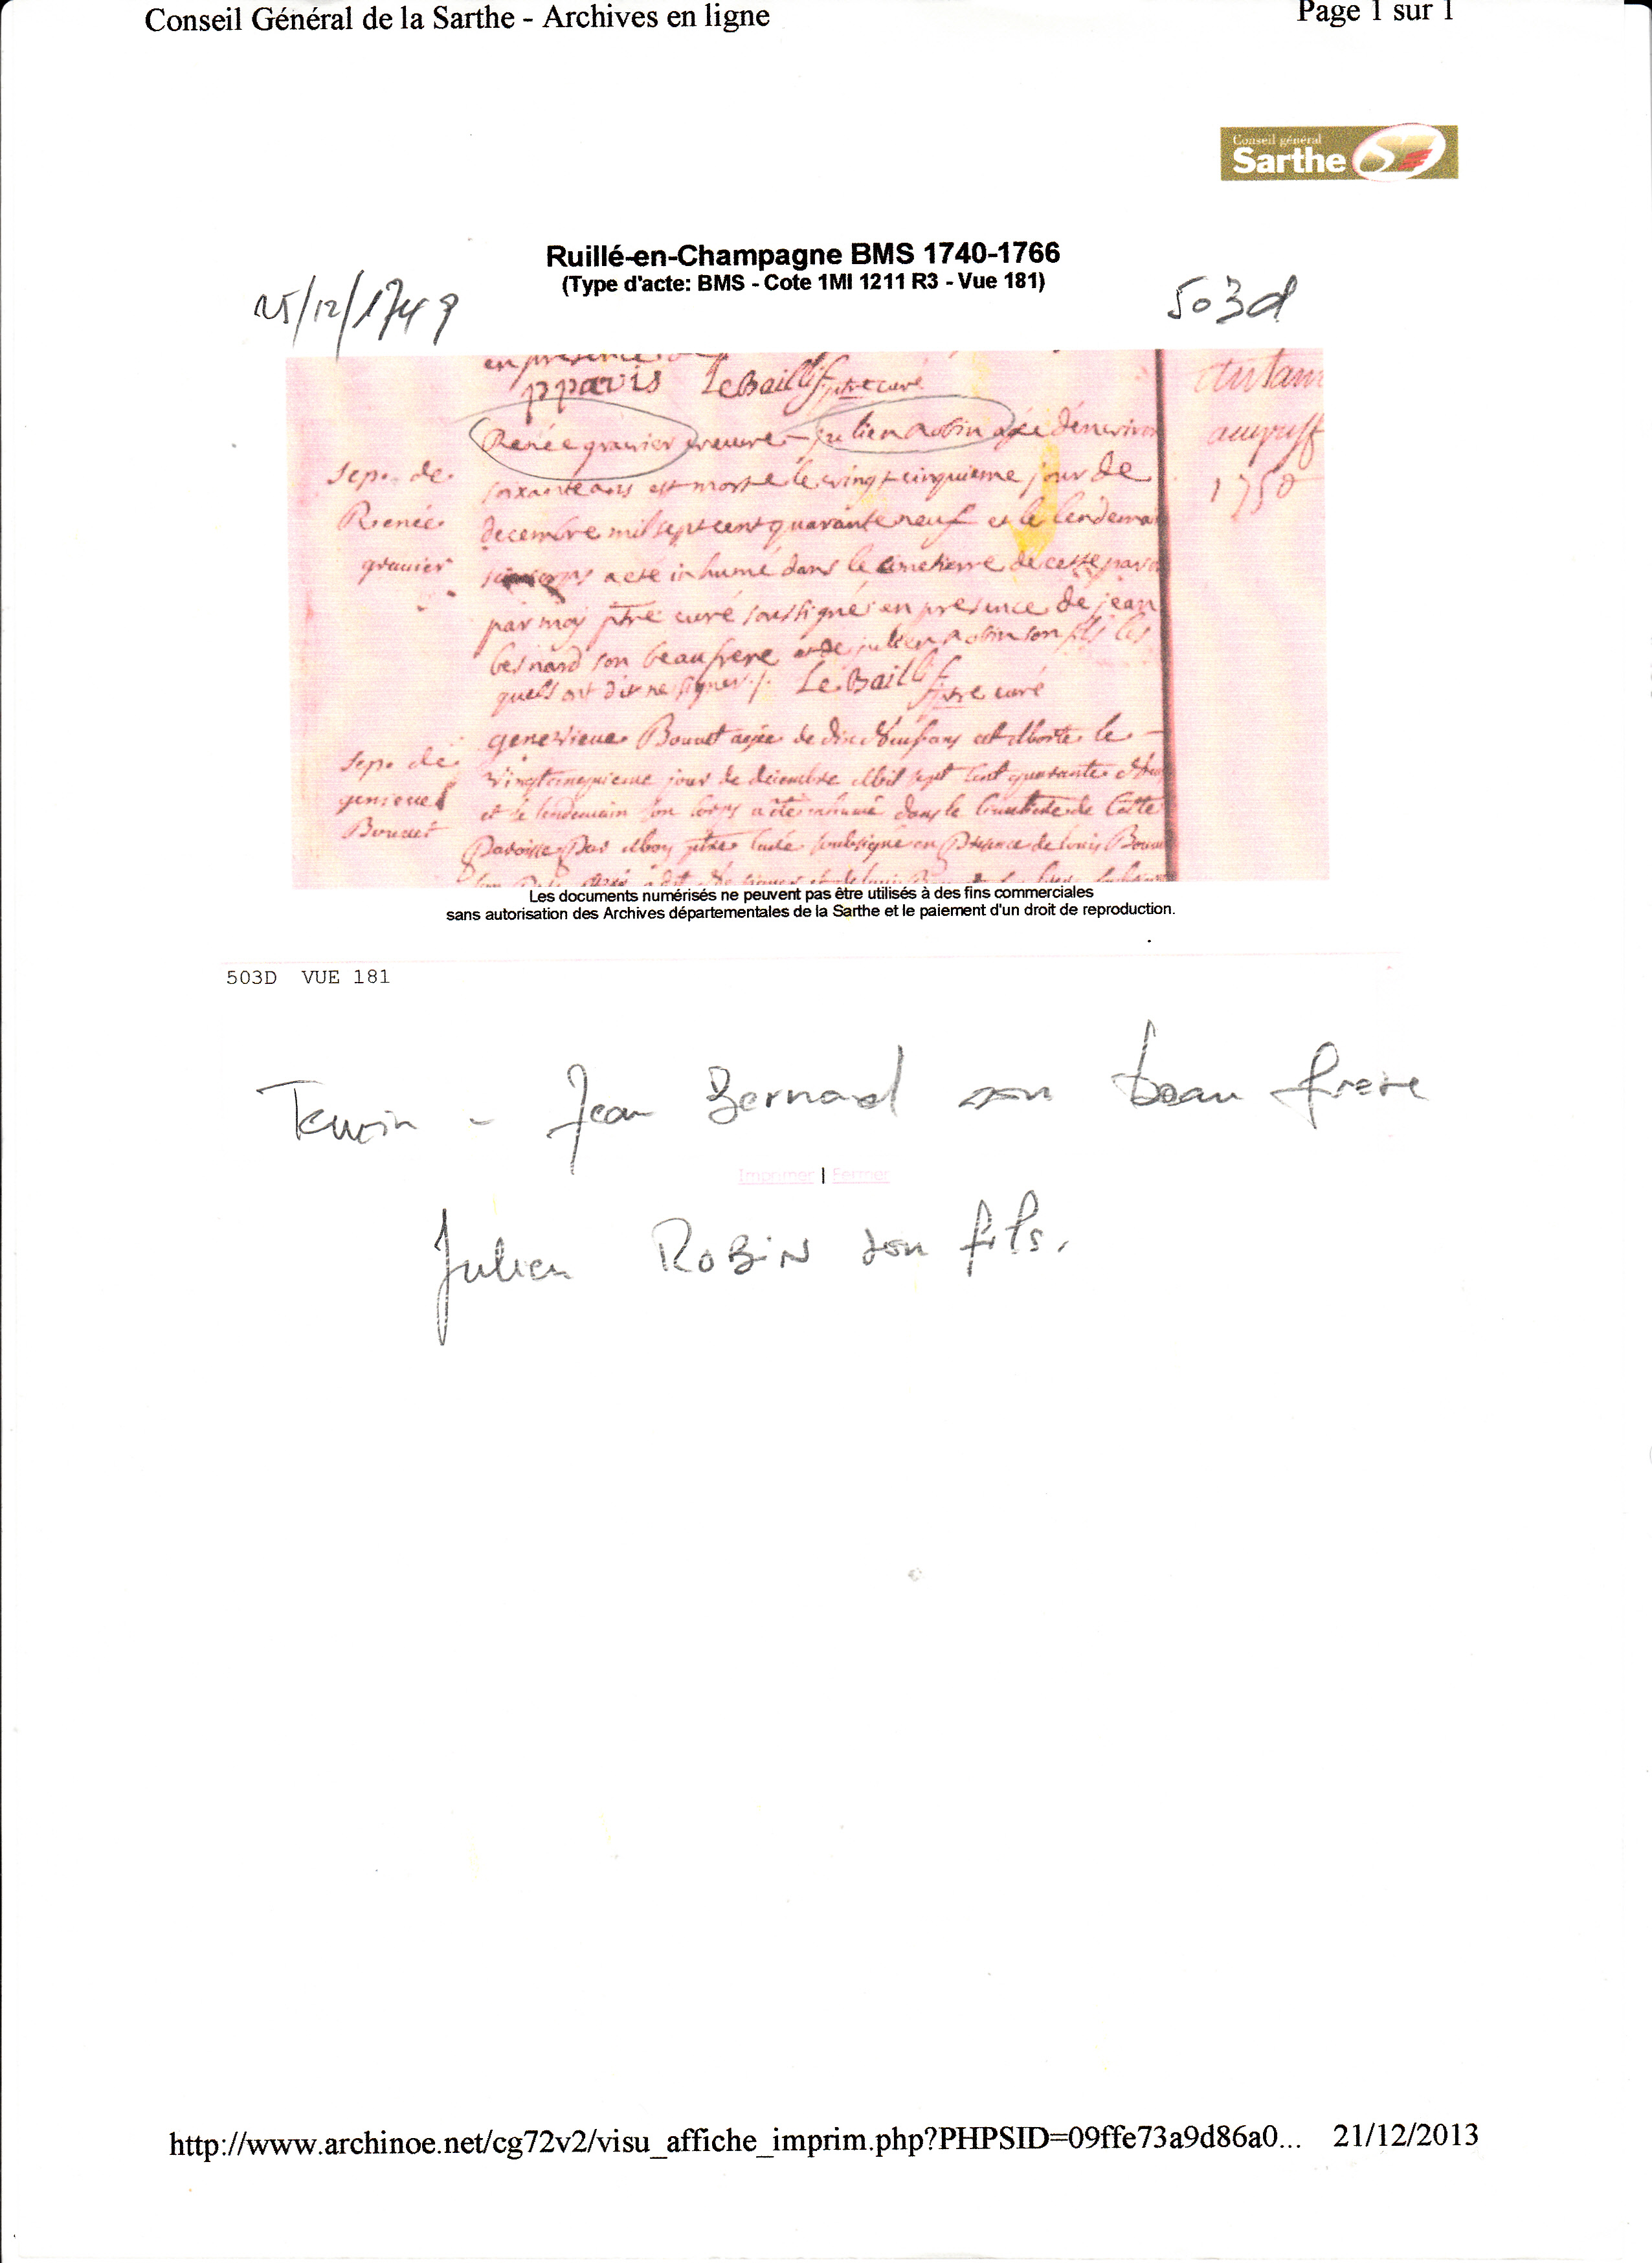 Conseil Général de la Sarthe - Archives en ligne
Page 1 sur 1
Conseil général
Sarthe
Ruillé-en-Champagne BMS 1740-1766
(Type d'acte: BMS - Cote 1MI 1211 R3 - Vue 181)
25/12/1749
503d
en presence
pparis LeBaillif ptre curé
Renée gravier veuve julien Robin agée d'environ
soixante ans est morte le vingt cinquieme jour de
decembre mil sept cent quarante neuf et le lendemai
son corps a eté inhumé dans le cimetierre de cette paroi
par moy ptre curé soussigné en presence de jean
besnard son beaufrere et de julien Robin son fils les
quels ont dit ne signer ./. LeBaillif ptre curé
Sep. de
Renée
gravier
1750
genevieve Bouuet agée de dix neuf ans est Morte le
vingtcinquieme jour de décembre Mil sept Cent quarante Neuf
et le lendemain son corps a été inhumé dans le Cimetiere de Cette
Paroisse Par Moy ptre Curé soubsigné en Presence de louis Bouuet
Sep. de
genieue
Bouuet
Les documents numérisés ne peuvent pas être utilisés à des fins commerciales
sans autorisation des Archives départementales de la Sarthe et le paiement d'un droit de reproduction.
503D VUE 181
Temoin - Jean Besnard son beau frere
Imprimer | Fermer
Julien ROBIN son fils.
http://www.archinoe.net/cg72v2/visu_affiche_imprim.php?PHPSID=09ffe73a9d86a0... 21/12/2013